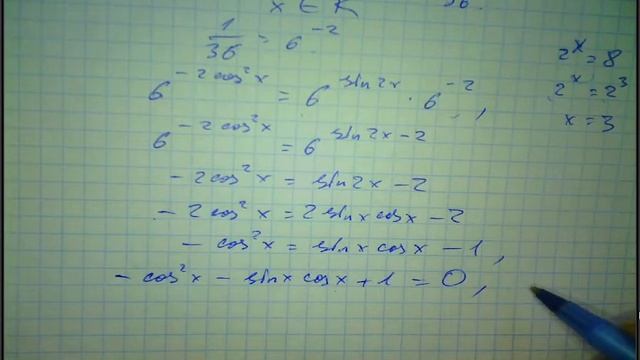 x ∈ R
36.
1/36 = 6^{-2}
6^{-2cos²x} = 6^{sin2x} · 6^{-2},
6^{-2cos²x} = 6^{sin2x-2}
-2cos²x = sin2x - 2
-2cos²x = 2sinx cosx - 2
-cos²x = sinx cosx - 1,
-cos²x - sinx cosx + 1 = 0,
2^x = 8
2^x = 2^3
x = 3